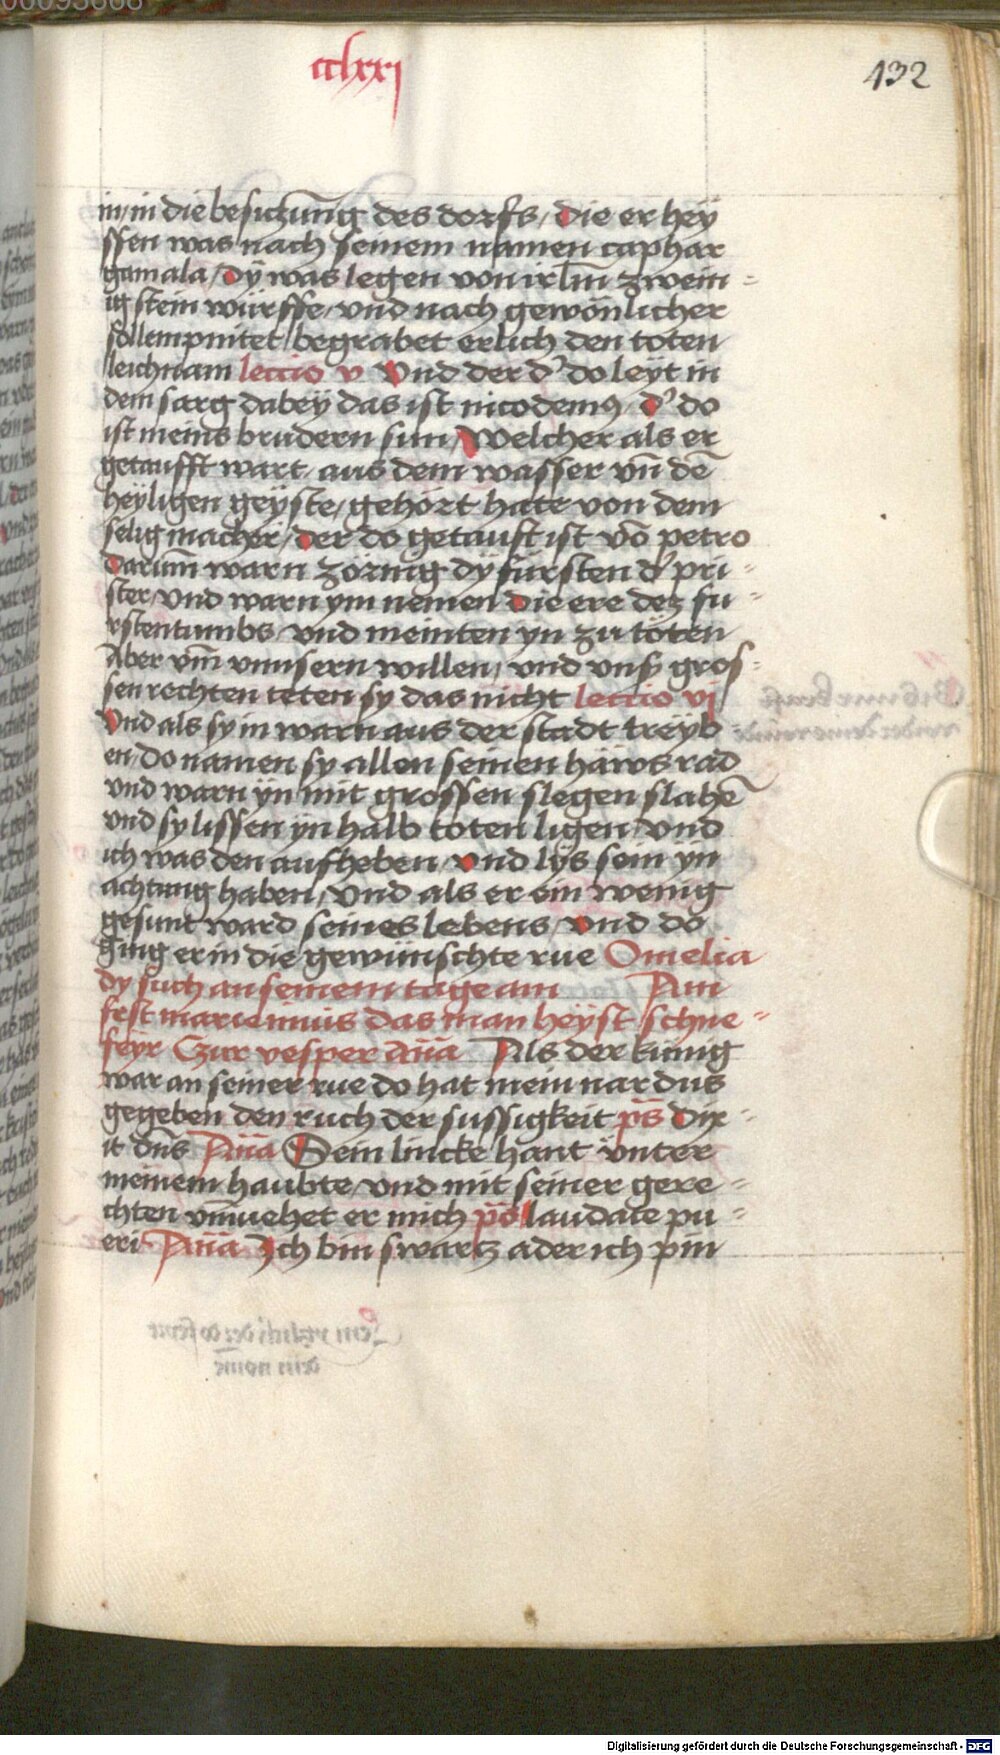 cclxxi
132
in/in die besiczūng des dorfs/ die er hey
ssen was nach seinem namen caphar
gamala/ dÿ was legen von irl̄m zwein-
ig stein würffe/ vnd nach gewönlicher
sollempnitet/ begrabet erlich den toten
leichnam leccio v Vnd der d' do leÿt in
dem sarg dabeÿ das ist nicodemꝰ/ d' do
ist meins brudern sun/ Welcher als er
getaufft wart/ aus dem wasser vn̄ dē
heÿligen geÿste/ gehört hate von dem
selig macher/ der do getauft ist vō petro
Darūm warn zörnig dÿ fürsten d' pri-
ster/ vnd warn ym nemen die ere dez fu-
rstentumbs vnd meinten yn zu töten
Aber vm̄ vnnsern willen/ vnd vnsˀ gros-
sen rechten teten sy das nicht leccio vi
Vnd als sy in warn aus der stadt treÿb
en/ do namen sy allen seinen häws rad
vnd warn yn mit grossen slegen slahē
vnd sy lissen ÿn halb toten ligen/ vnd
ich was den aufheben/ vnd lÿs sein ÿn
achtung haben/ vnd als er ein wenig
gesunt ward seines lebens/ vnd do
ging er in die gewünschte rue Omelia
dy such an seinem tage am Am
fest marie niuis das man heÿst schne-
feÿr Czur vesper an̄a Als der künig
war an seiner rue do hat mein nardus
gegeben den ruch der sussigkeit ps̄ Dix-
it dn̄s An̄a Sein lincke hant vnter
meinem haubte/ vnd mit seiner gere-
chten vm̄uehet er mich ps̄ laudate pu-
eri An̄a Ich bin swartz ader ich pin
Digitalisierung gefördert durch die Deutsche Forschungsgemeinschaft - DFG